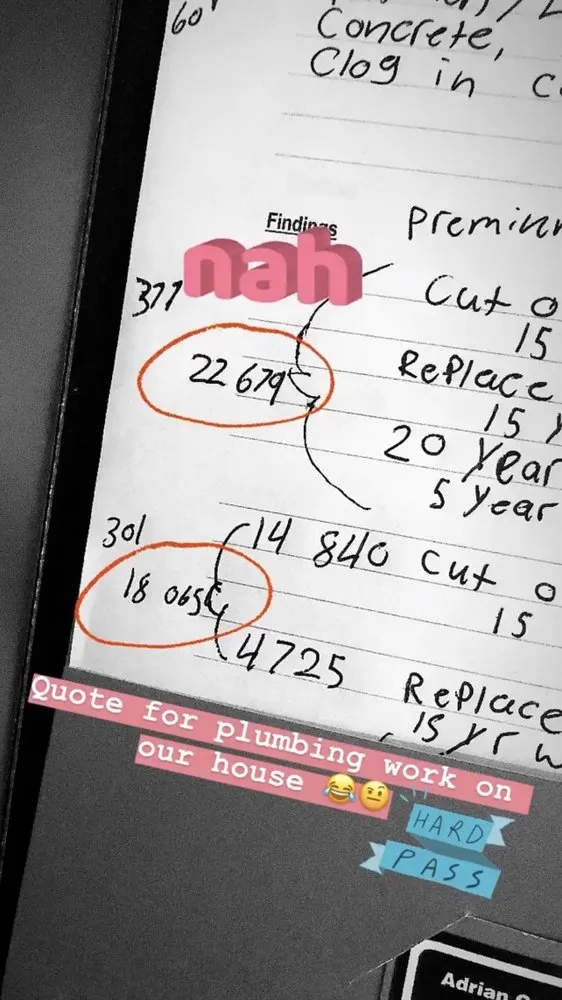 60
Concrete,
Clog in
Findings
nah
377
Cut
15
22 679
Replace
15
20 Year
5 Year
301
14 840 Cut
18 065
15
4725
Replace
15 yr
Quote for plumbing work on
our house 😂🤨
HARD
PASS
Adrian